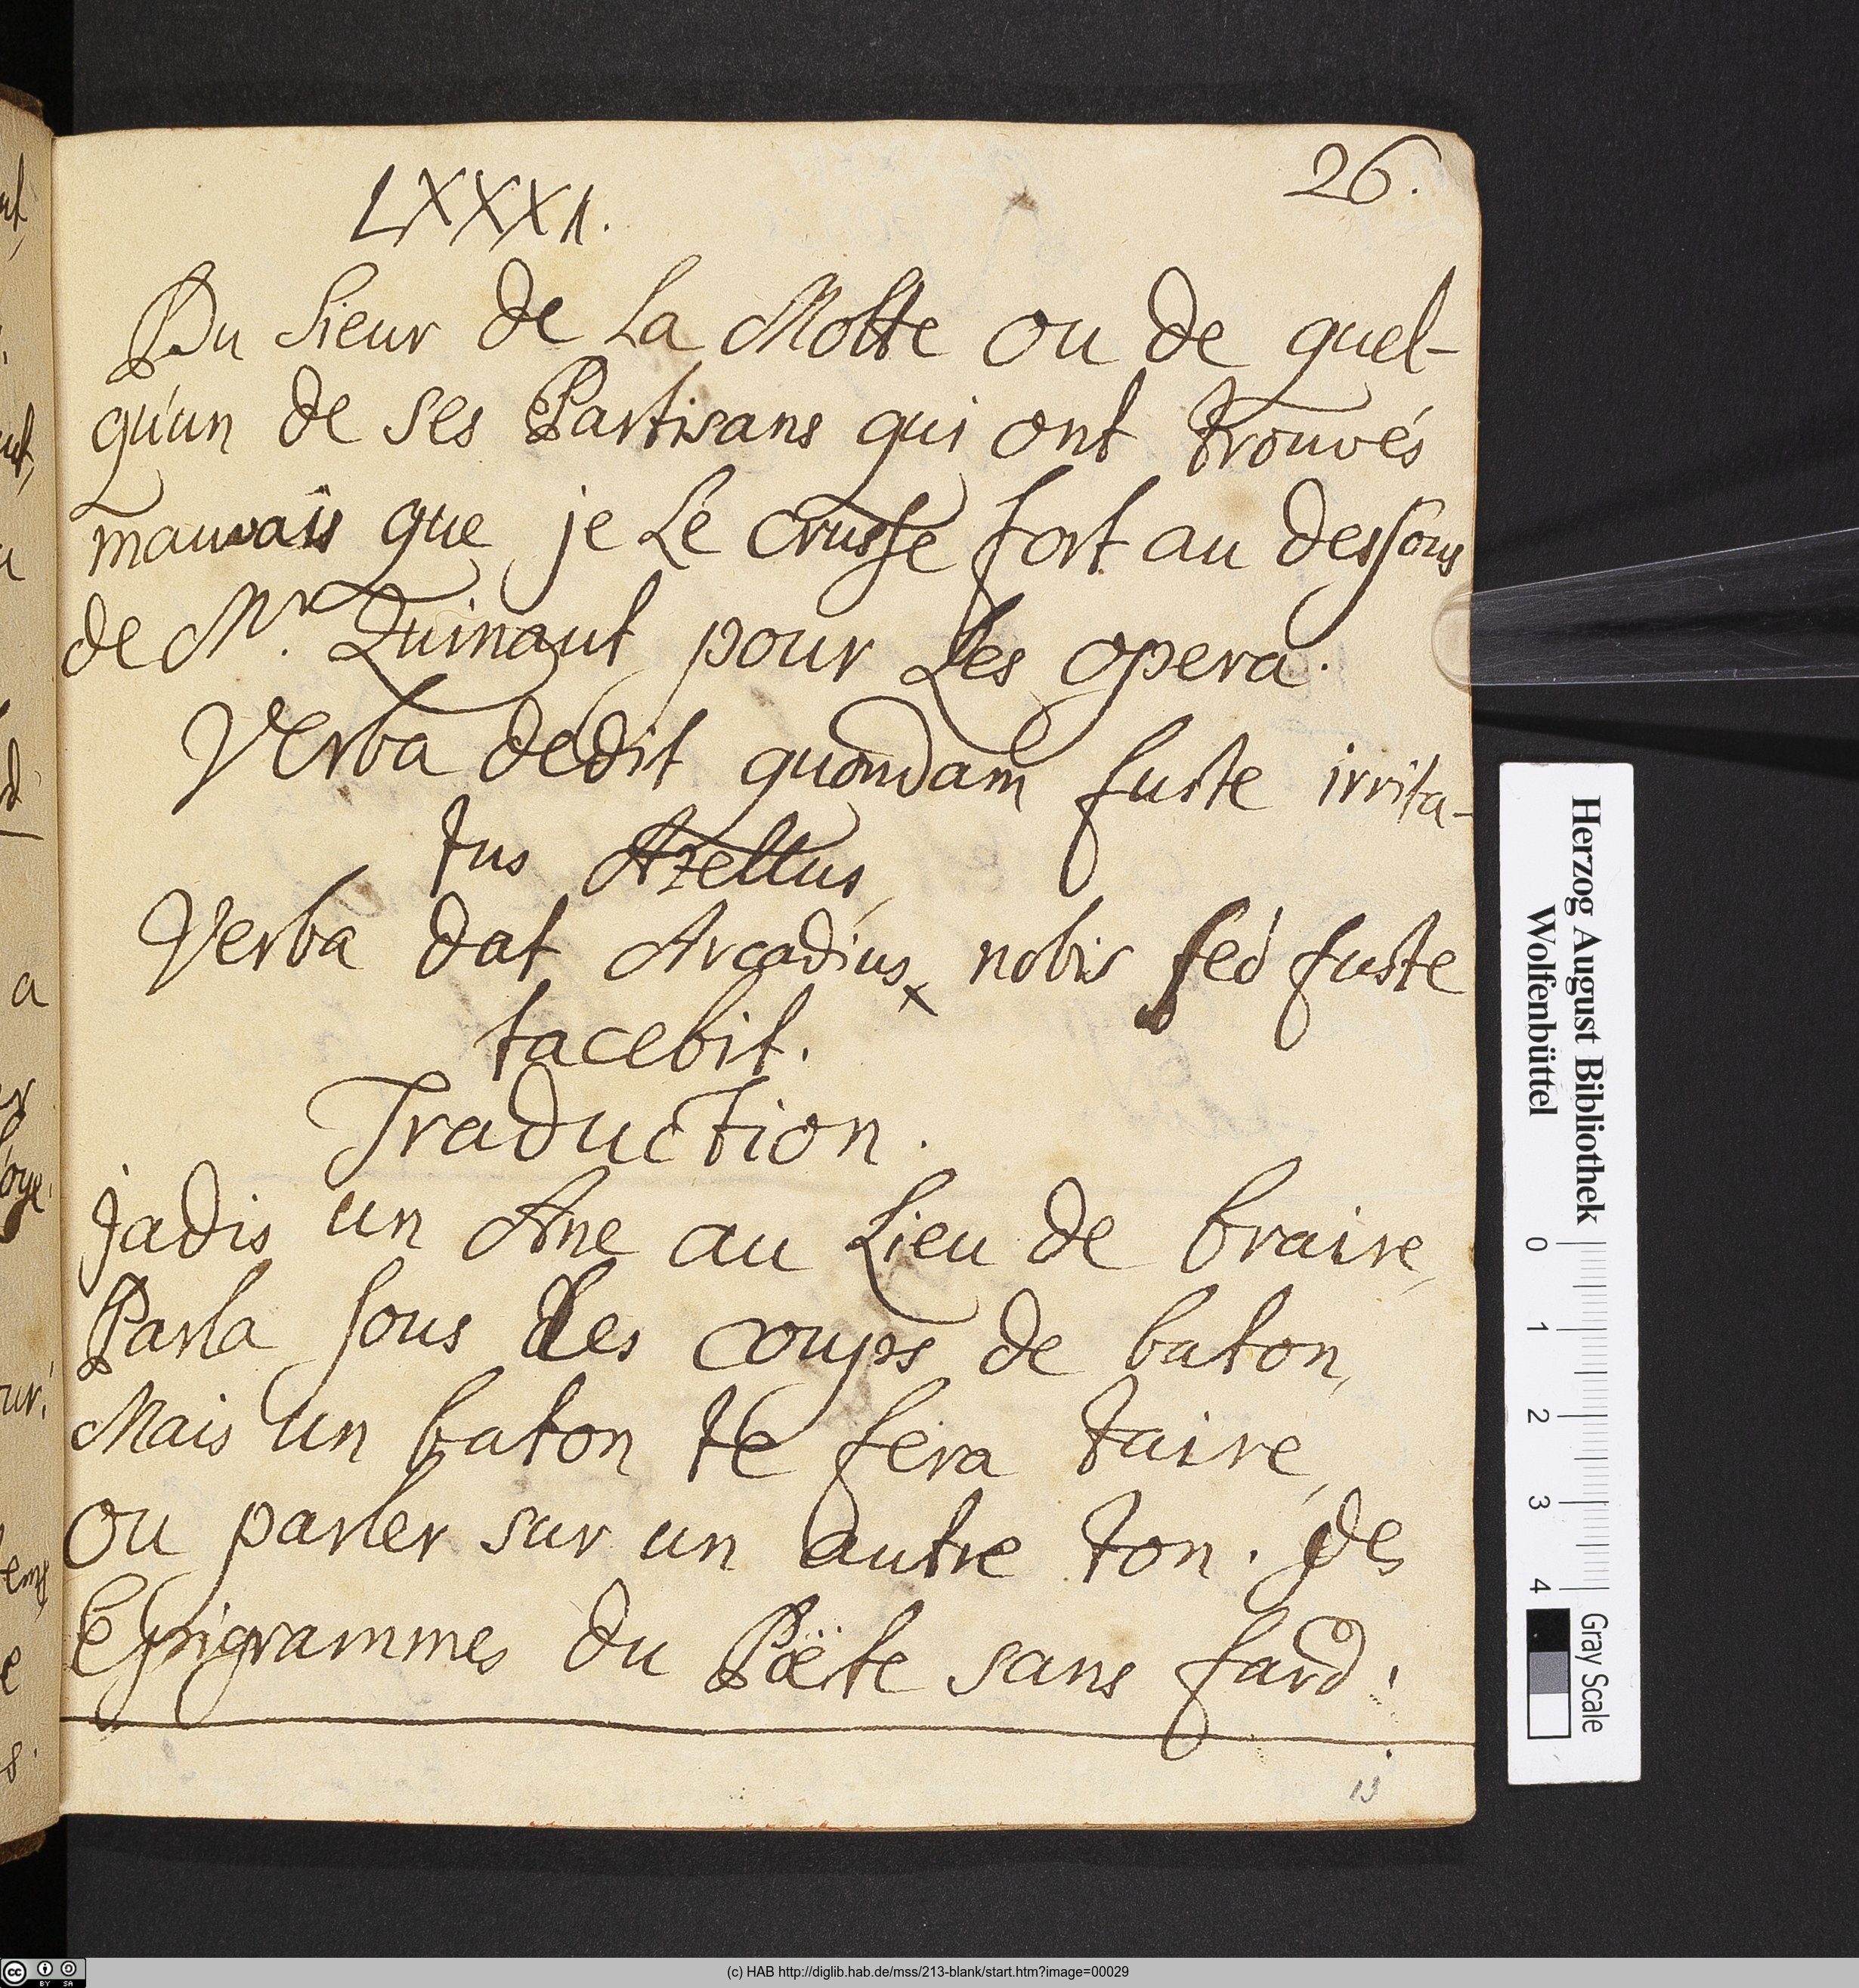 26.
LXXXI.
Du Sieur de La Motte ou de quel-
qu'un de ses Partisans qui ont trouvés
mauvais que je Le crusse fort au dessous
de Mr. Quinaut pour Les opera.
Verba dedit quondam fuste irrita-
tus Azellus,
Verba dat Arcadius x nobis sed fuste
tacebit.
Traduction.
jadis un Ane au Lieu de braire,
Parla sous Les coups de baton,
Mais un baton te fera taire,
ou parler sur un autre ton. des
Epigrammes du Poëte sans fard.
13
Herzog August Bibliothek
Wolfenbüttel
0 1 2 3 4
Gray Scale
(c) HAB http://diglib.hab.de/mss/213-blank/start.htm?image=00029
cc BY SA